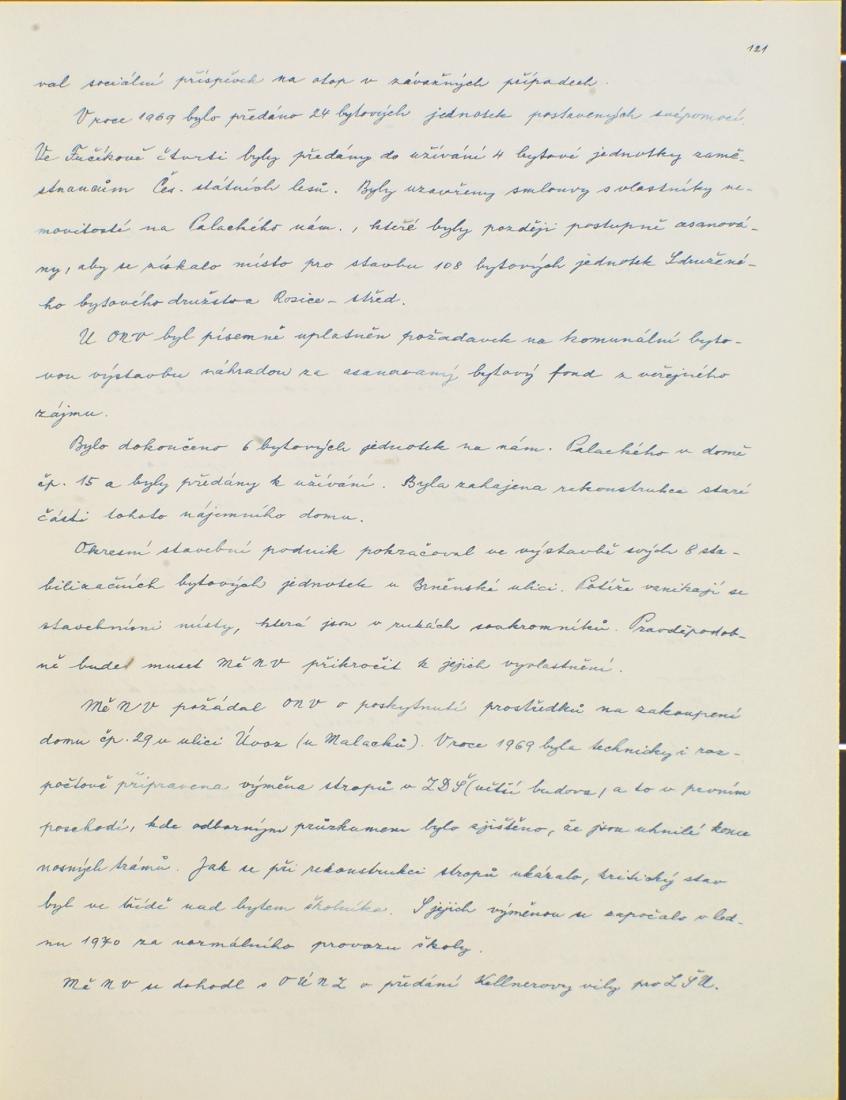 121
val sociální příspěvek na otop v závažných případech.
V roce 1969 bylo předáno 24 bytových jednotek postavených svépomocí.
Ve Fučíkově čtvrti byly předány do užívání 4 bytové jednotky zamě-
stnancům Čes. státních lesů. Byly uzavřeny smlouvy s vlastníky ne-
movitostí na Palackého nám., které byly později postupně asanová-
ny, aby se získalo místo pro stavbu 108 bytových jednotek Sdružené-
ho bytového družstva Rosice - střed.
U ONV byl písemně uplatněn požadavek na komunální byto-
vou výstavbu náhradou za asanovaný bytový fond z veřejného
zájmu.
Bylo dokončeno 6 bytových jednotek na nám. Palackého v domě
čp. 15 a byly předány k užívání. Byla zahájena rekonstrukce staré
části tohoto nájemního domu.
Okresní stavební podnik pokračoval ve výstavbě svých 8 sta-
bilizačních bytových jednotek v Brněnské ulici. Potíže vznikají se
stavebními místy, která jsou v rukách soukromníků. Pravděpodob-
ně bude muset MěNV přikročit k jejich vyvlastnění.
MěNV požádal ONV o poskytnutí prostředků na zakoupení
domu čp. 29 v ulici Úvoz (u Malachů). V roce 1969 byla technicky i roz-
počtově připravena výměna stropů v ZDŠ (větší budova) a to v prvním
poschodí, kde odborným průzkumem bylo zjištěno, že jsou uhnilé konce
nosných trámů. Jak se při rekonstrukci stropů ukázalo, kritický stav
byl ve třídě nad bytem školníka. S jejich výměnou se započalo v led-
nu 1970 za normálního provozu školy.
MěNV se dohodl s OÚNZ o předání Kellnerovy vily pro LŠU.